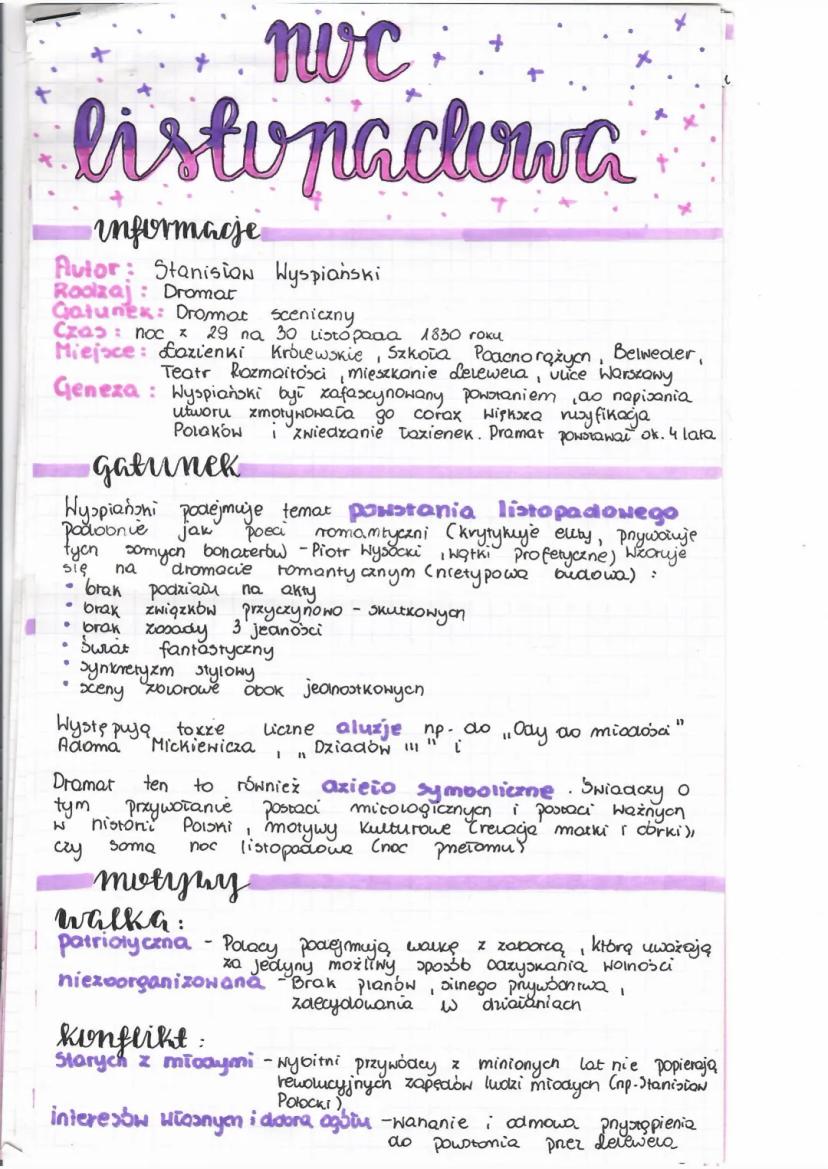 noc
listopadowa
informacje
Autor: Stanisław Wyspiański
Rodzaj: Dramat
Gatunek: Dramat sceniczny
Czas: noc z 29 na 30 listopada 1830 roku
Miejsce: Łazienki Królewskie, Szkoła Podchorążych, Belweder,
Teatr Rozmaitości, mieszkanie Lelewela, ulice Warszawy
Geneza: Wyspiański był zafascynowany powstaniem, do napisania
utworu zmotywowała go coraz większa rusyfikacja
Polaków i zwiedzanie Łazienek. Dramat powstawał ok. 4 lata
gatunek
Wyspiański podejmuje temat powstania listopadowego
podobnie jak poeci romantyczni (krytykuje elity, przywołuje
tych samych bohaterów - Piotr Wysocki, wątki profetyczne) Wzoruje
się na dramacie romantycznym (nietypowa budowa):
• brak podziału na akty
• brak związków przyczynowo - skutkowych
• brak zasady 3 jedności
• świat fantastyczny
• synkretyzm stylowy
• sceny zbiorowe obok jednostkowych
Występują także liczne aluzje np. do „Ody do młodości"
Adama Mickiewicza, „Dziadów III" i
Dramat ten to również dzieło symboliczne. Świadczy o
tym przywołanie postaci mitologicznych i postaci ważnych
w historii Polski, motywy kulturowe (relacja matki i córki),
czy sama noc listopadowa (noc przełomu)
motywy
walka:
patriotyczna - Polacy podejmują walkę z zaborcą, którą uważają
za jedyny możliwy sposób odzyskania wolności
niezoorganizowana - Brak planów, silnego przywództwa,
zdecydowania w działaniach
konflikt:
starych z młodymi - wybitni przywódcy z minionych lat nie popierają
rewolucyjnych zapędów ludzi młodych (np. Stanisław
Potocki)
interesów własnych i dobra ogółu - wahanie i odmowa przystąpienia
do powstania przez Lelewela